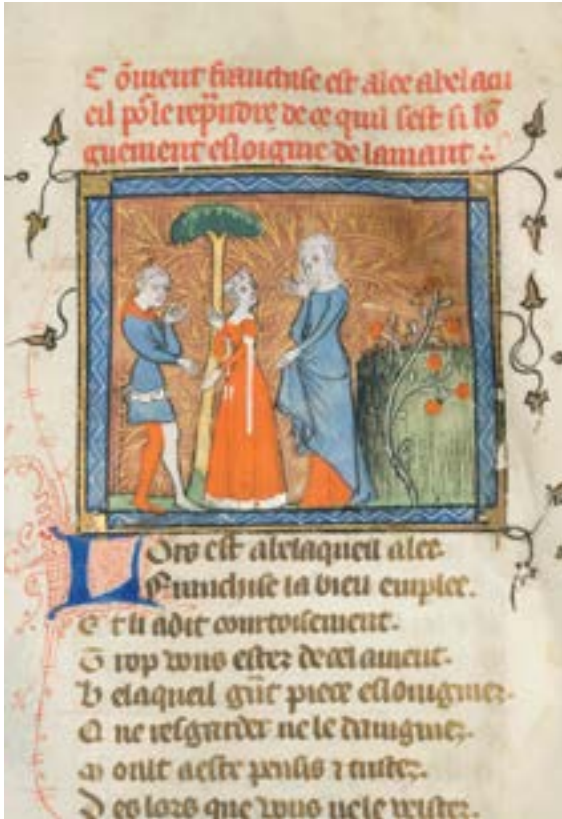 Cōment franchise est alee abelacu
eil pōr le repr̄ndre de ce quil sest si lō
guement esloigne de lamant
Lors est abelaqueil alee
Franchise la bien emplee.
Et li a dit courtoisement.
Trop vous estez de cel ament.
Belaqueil gr̄nt piece esloignez.
Q ne resgarder ne le daingniez.
Moult a este pensis ⁊ tristez.
Des lors que vous ne le veistez.